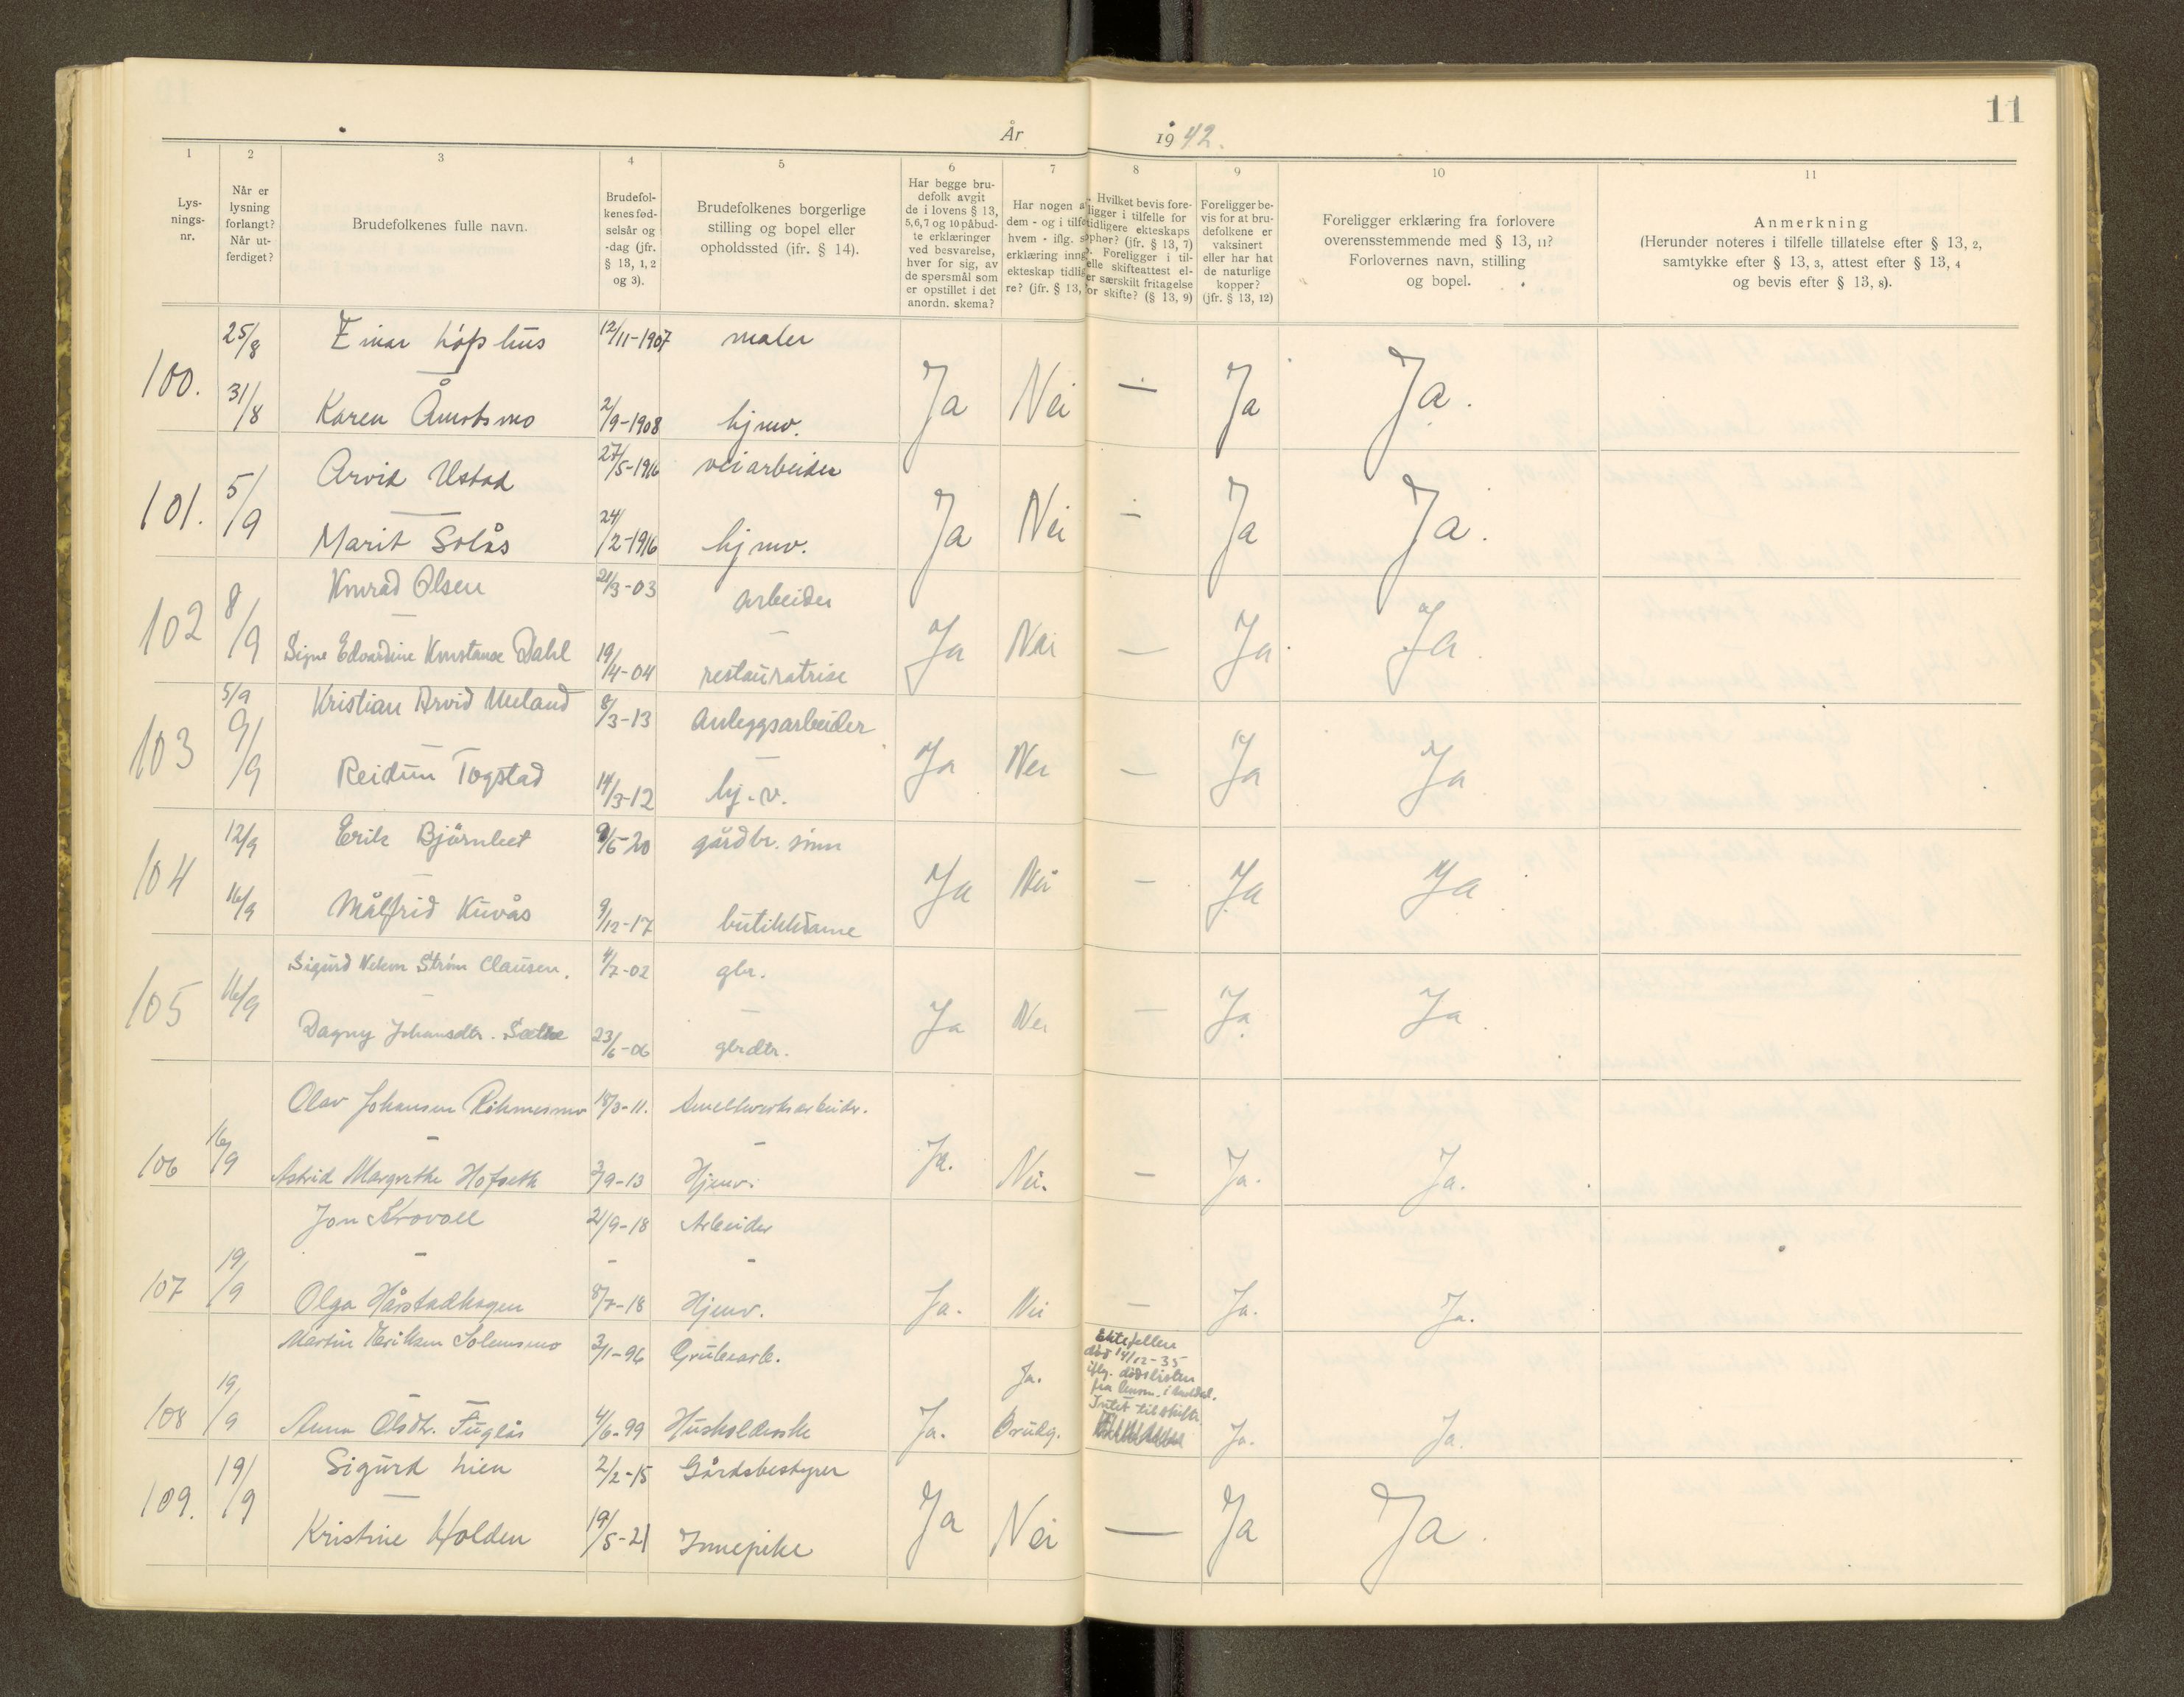 11
År 1942.
1 2 3 4 5 6 7 8 9 10 11
Lys-
nings-
nr.
Når er
lysning
forlangt?
Når ut-
ferdiget?
Brudefolkenes fulle navn.
Brudefol-
kenes fød-
selsår og
-dag (jfr.
§ 13, 1, 2
og 3).
Brudefolkenes borgerlige
stilling og bopel eller
opholdssted (ifr. § 14).
Har begge bru-
defolk avgit
de i lovens § 13,
5,6,7 og 10 påbud-
te erklæringer
ved besvarelse,
hver for sig, av
de spørsmål som
er opstillet i det
anordn. skema?
Har nogen a
dem - og i tilfe
hvem - iflg. s
erklæring inng
ekteskap tidlig
re? (jfr. § 13,
Hvilket bevis fore-
ligger i tilfelle for
tidligere ekteskaps
ophør? (jfr. § 13, 7)
Foreligger i til-
elle skifteattest el-
er særskilt fritagelse
or skifte? (§ 13, 9)
Foreligger be-
vis for at bru-
defolkene er
vaksinert
eller har hat
de naturlige
kopper?
(jfr. § 13, 12)
Foreligger erklæring fra forlovere
overensstemmende med § 13, 11?
Forlovernes navn, stilling
og bopel.
Anmerkning
(Herunder noteres i tilfelle tillatelse efter § 13, 2,
samtykke efter § 13, 3, attest efter § 13, 4
og bevis efter § 13, 8).
25/8 Einar Løfshus 12/11-1907 maler
100. Ja Nei — Ja Ja.
31/8 Karen Åmotsmo 2/9-1908 hjmv.
Arvid Ustad 27/5-1916 veiarbeider
101. 5/9 Ja Nei — Ja Ja.
Marit Solås 24/2-1916 hjmv.
Konrad Olsen 21/3-03 arbeider
102 8/9 Ja Nei — Ja Ja
Signe Edvardine Konstanse Dahl 19/4-04 restauratrise
5/9 Kristian Arvid Meland 8/3-13 Anleggsarbeider
103 9/9 Ja Nei — Ja Ja
Reidun Togstad 14/3-12 hj.v.
12/9 Erik Bjørnbet 9/5-20 gårdbr. sønn
104 Ja Nei — Ja Ja
16/9 Målfrid Kuvås 9/12-17 butikkdame
Sigurd Strøm Clausen. 4/7-02 gbr.
105 16/9 Ja Nei — Ja Ja
Dagny Johansdtr. Sæthe 23/6-06 gbrdtr.
Olav Johansen 18/3-11. Smelteverksarbeider.
106 16/9 Ja. Nei. — Ja. Ja.
Astrid Margrethe Hofseth 2/9-13 Hjemv.
Jon Krovoll 21/9-18 Arbeider
107 19/9 Ja. Nei — Ja. Ja.
Olga Hårstadhagen 8/7-18 Hjemv.
Martin Eriksen Solemsmo 2/1-96 Grubearb.
Ektefellen
død 14/12-35
iflg. dødslisten
fra
Intet til skifte
108 19/9 Ja. Ja. Brudg. Ja. Ja.
Anna Olsdtr. Fuglås 4/6-99 Husholderske
Sigurd Lien 2/2-15 Gårdsbestyrer
109. 19/9 Ja Nei — Ja Ja.
Kristine Holden 19/5-21 Innepike